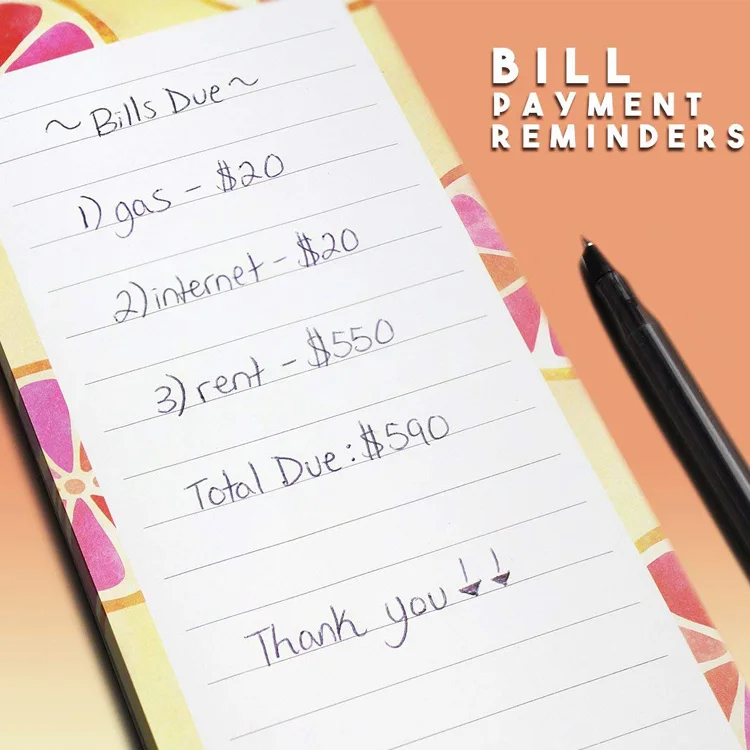 ~Bills Due~
1) gas - $20
2) internet - $20
3) rent - $550
Total Due: $590
Thank you
BILL
PAYMENT
REMINDERS